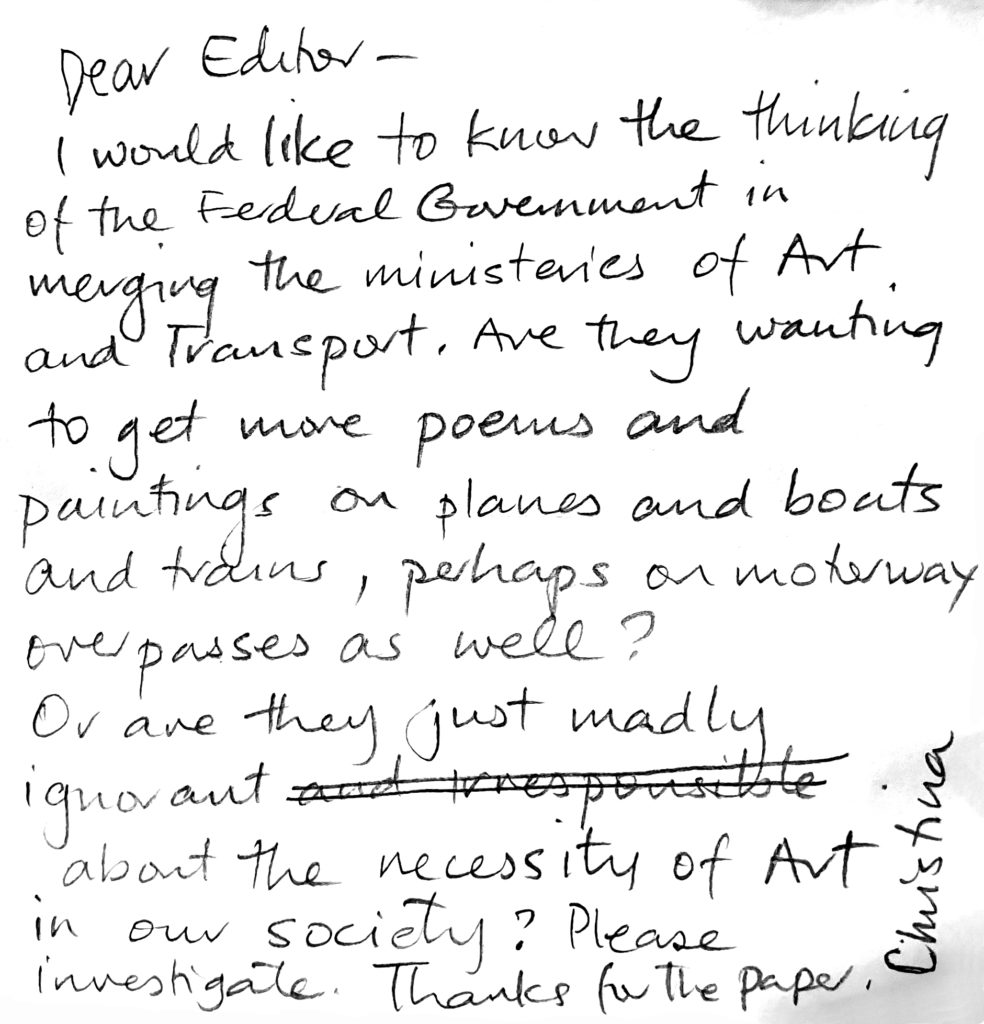 Dear Editor –
I would like to know the thinking
of the Federal Government in
merging the ministeries of Art
and Transport. Are they wanting
to get more poems and
paintings on planes and boats
and trains, perhaps on moterway
overpasses as well?
Or are they just madly
ignorant and irresponsible
about the necessity of Art
in our society? Please
investigate. Thanks for the paper.
Christina